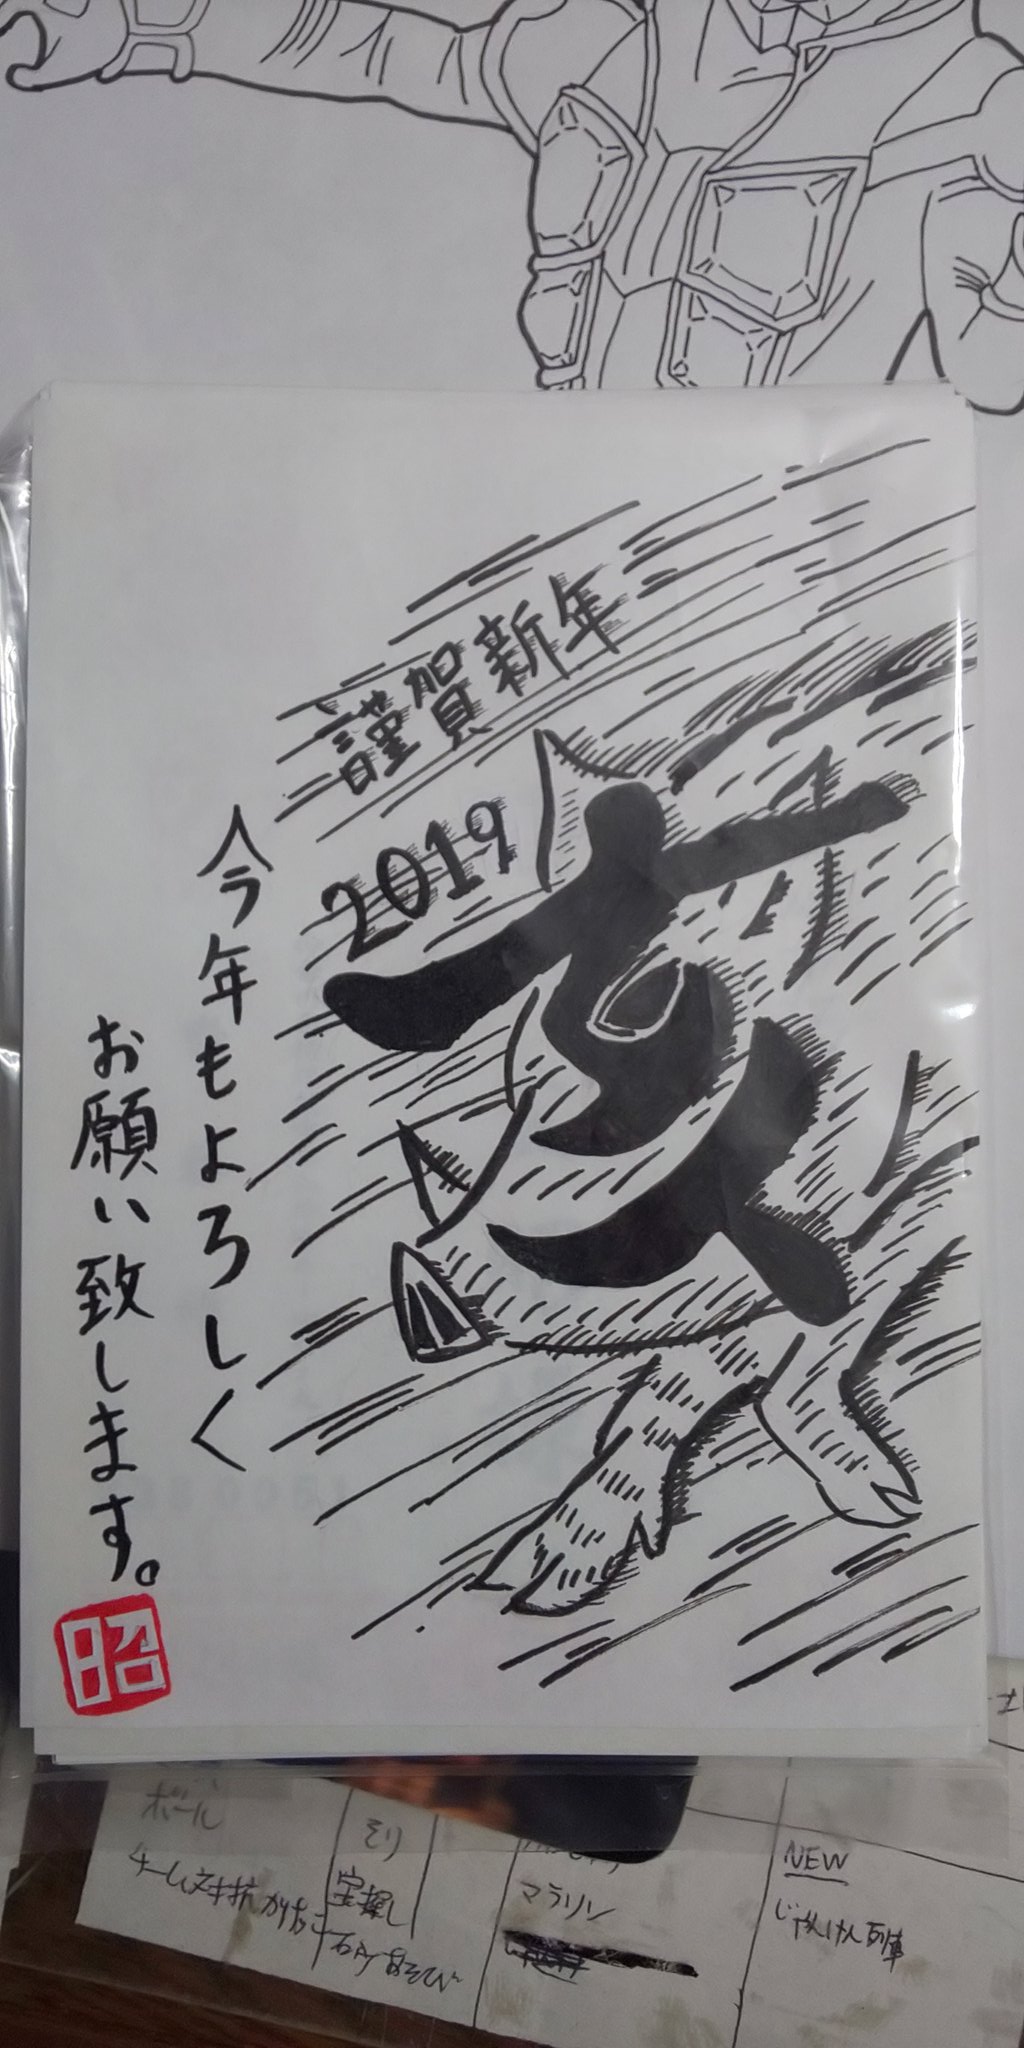 謹賀新年
2019
亥
今年もよろしく
お願い致します。
昭
ボール
チーム対抗
そり
宝探し
マラソン
NEW
じゃんけん列車